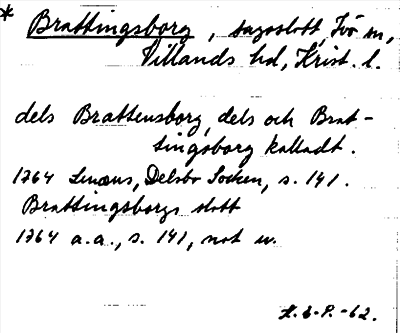 * Brattingsborg, sagoslott, Ivö sn,
Villands hd, Krist. l.
dels Brattensborg, dels och Brat-
tingsborg kalladt.
1764 Lenæus, Delsbo Socken, s. 141.
Brattingsborgs slott
1764 a.a., s. 141, not u.